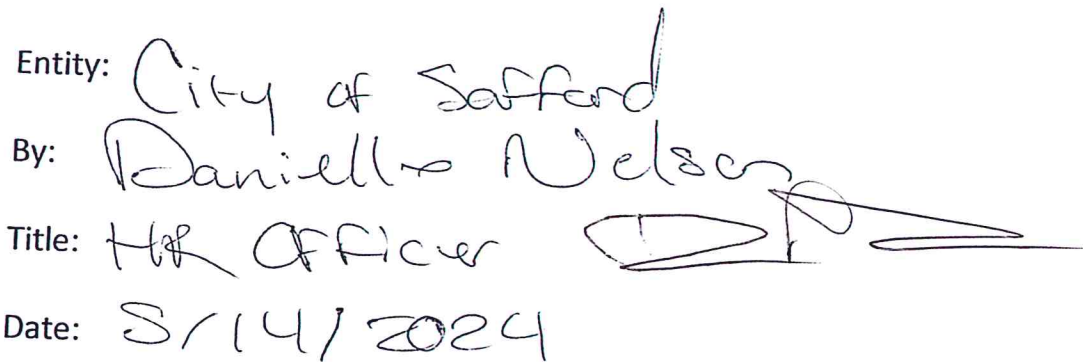 Entity: City of Safford
By: Danielle Nelson
Title: HR Officer
Date: 5/14/2024